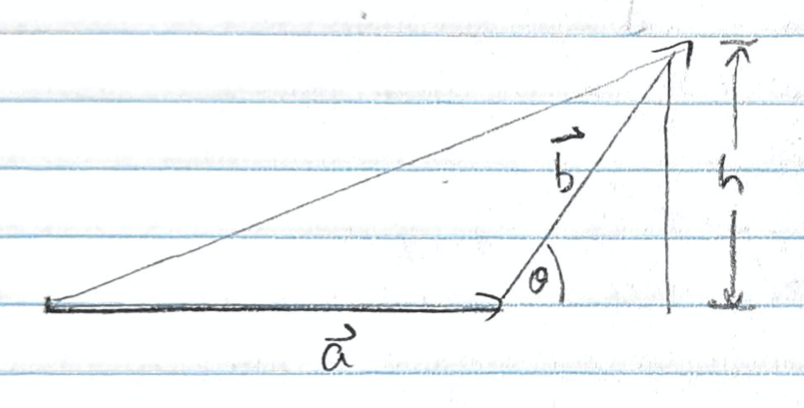 b⃗
h
θ
a⃗